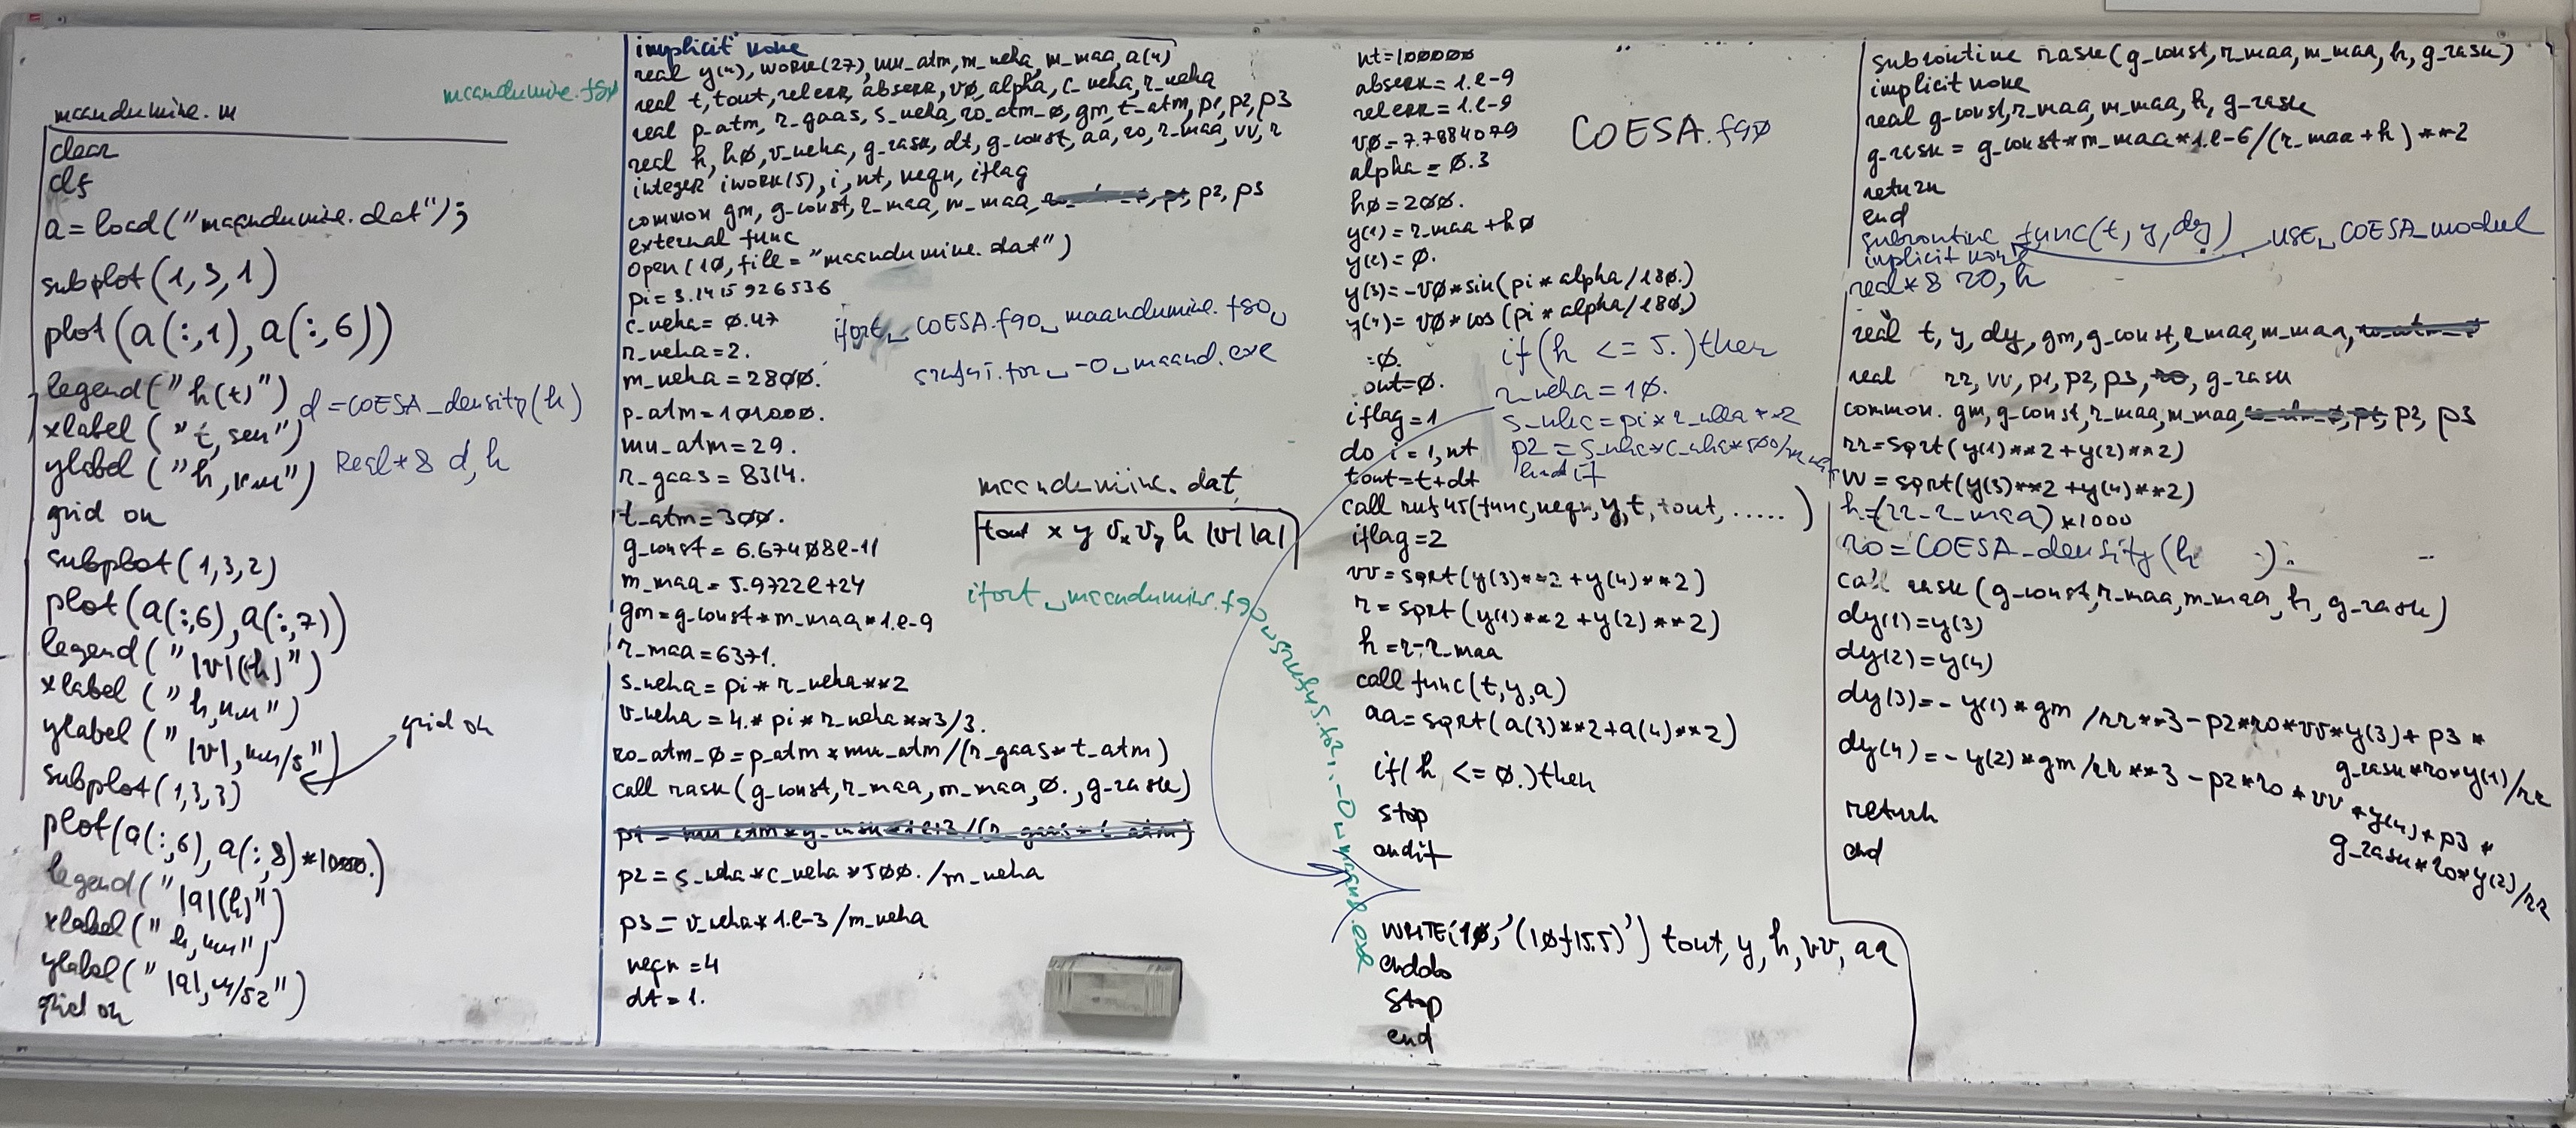 maandumine.m
clear
clf
a=load("maandumine.dat");
subplot(1,3,1)
plot(a(:,1),a(:,6))
legend("h(t)")
xlabel("t, sek")
ylabel("h, km")
grid on
subplot(1,3,2)
plot(a(:,6),a(:,7))
legend("|v|(h)")
xlabel("h,km")
ylabel("|v|,km/s")
grid on
subplot(1,3,3)
plot(a(:,6),a(:,8)*1000.)
legend("|a|(h)")
xlabel("h,km")
ylabel("|a|,m/s2")
grid on
d=COESA_density(h)
Real*8 d,h
maandumine.f90
implicit none
real y(4), work(27), mu_atm, m_keha, m_maa, a(4)
real t, tout, relerr, abserr, v0, alpha, c_keha, r_keha
real p_atm, r_gaas, s_keha, ro_atm_0, gm, t_atm, p1, p2, p3
real h, h0, v_keha, g_rask, dt, g_const, aa, ro, r_maa, vv, r
integer iwork(5), i, nt, neqn, iflag
common gm, g_const, r_maa, m_maa, p2, p3
external func
open(10, file="maandumine.dat")
pi=3.1415926536
c_keha=0.47
r_keha=2.
m_keha=2800.
p_atm=101000.
mu_atm=29.
r_gaas=8314.
t_atm=300.
g_const=6.67408e-11
m_maa=5.9722e+24
gm=g_const*m_maa*1.e-9
r_maa=6371.
s_keha=pi*r_keha**2
v_keha=4.*pi*r_keha**3/3.
ro_atm_0=p_atm*mu_atm/(r_gaas*t_atm)
call rask(g_const,r_maa,m_maa,0.,g_rask)
p2=s_keha*c_keha*500./m_keha
p3=v_keha*1.e-3/m_keha
neqn=4
dt=1.
ifort␣COESA.f90␣maandumine.f90␣
srkf45.for␣-o␣maand.exe
maandumine.dat
tout x y vx vy h |v| |a|
ifort␣maandumine.f90␣srkf45.for␣-o␣maand.exe
nt=100000
abserr=1.e-9
relerr=1.e-9
v0=7.7884079
alpha=0.3
h0=200.
y(1)=r_maa+h0
y(2)=0.
y(3)=-v0*sin(pi*alpha/180.)
y(4)=v0*cos(pi*alpha/180.)
=0.
out=0.
iflag=1
do i=1,nt
tout=t+dt
call rkf45(func,neqn,y,t,tout,.....)
iflag=2
vv=sqrt(y(3)**2+y(4)**2)
r=sqrt(y(1)**2+y(2)**2)
h=r-r_maa
call func(t,y,a)
aa=sqrt(a(3)**2+a(4)**2)
if(h <= 0.)then
stop
endif
WRITE(10,'(10f15.5)') tout,y,h,vv,aa
enddo
stop
end
COESA.f90
if(h <= 5.)then
r_keha=10.
s_keha=pi*r_keha**2
p2=s_keha*c_keha*500/m_keha
endif
subroutine rask(g_const,r_maa,m_maa,h,g_rask)
implicit none
real g_const,r_maa,m_maa,h,g_rask
g_rask=g_const*m_maa*1.e-6/(r_maa+h)**2
return
end
subroutine func(t,y,dy)
USE␣COESA_modul
implicit none
real*8 ro,h
real t,y,dy,gm,g_const,r_maa,m_maa,
real rr,vv,p1,p2,p3,g_rask
common gm,g_const,r_maa,m_maa, p2,p3
rr=sqrt(y(1)**2+y(2)**2)
vv=sqrt(y(3)**2+y(4)**2)
h=(rr-r_maa)*1000
ro=COESA_density(h ).
call rask(g_const,r_maa,m_maa,h,g_rask)
dy(1)=y(3)
dy(2)=y(4)
dy(3)=-y(1)*gm/rr**3-p2*ro*vv*y(3)+p3*
g_rask*ro*y(1)/rr
dy(4)=-y(2)*gm/rr**3-p2*ro*vv*y(4)+p3*
g_rask*ro*y(2)/rr
return
end